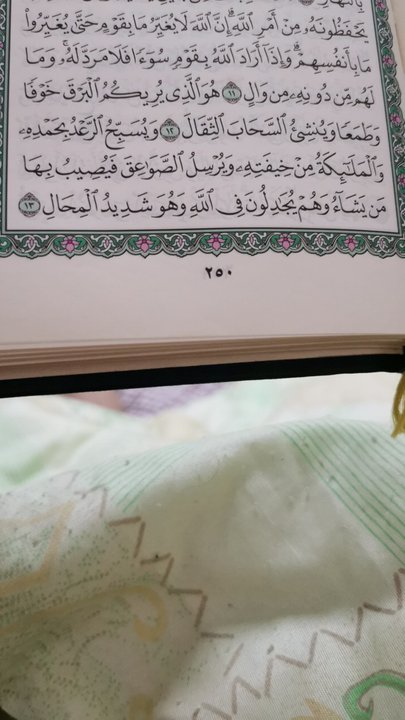 بِٱلنَّهَارِ ۝١٠
يَحْفَظُونَهُۥ مِنْ أَمْرِ ٱللَّهِ ۗ إِنَّ ٱللَّهَ لَا يُغَيِّرُ مَا بِقَوْمٍ حَتَّىٰ يُغَيِّرُوا۟
مَا بِأَنفُسِهِمْ ۗ وَإِذَآ أَرَادَ ٱللَّهُ بِقَوْمٍ سُوٓءًا فَلَا مَرَدَّ لَهُۥ ۚ وَمَا
لَهُم مِّن دُونِهِۦ مِن وَالٍ ۝١١ هُوَ ٱلَّذِى يُرِيكُمُ ٱلْبَرْقَ خَوْفًا
وَطَمَعًا وَيُنشِئُ ٱلسَّحَابَ ٱلثِّقَالَ ۝١٢ وَيُسَبِّحُ ٱلرَّعْدُ بِحَمْدِهِۦ
وَٱلْمَلَٰٓئِكَةُ مِنْ خِيفَتِهِۦ وَيُرْسِلُ ٱلصَّوَٰعِقَ فَيُصِيبُ بِهَا
مَن يَشَآءُ وَهُمْ يُجَٰدِلُونَ فِى ٱللَّهِ وَهُوَ شَدِيدُ ٱلْمِحَالِ ۝١٣
٢٥٠